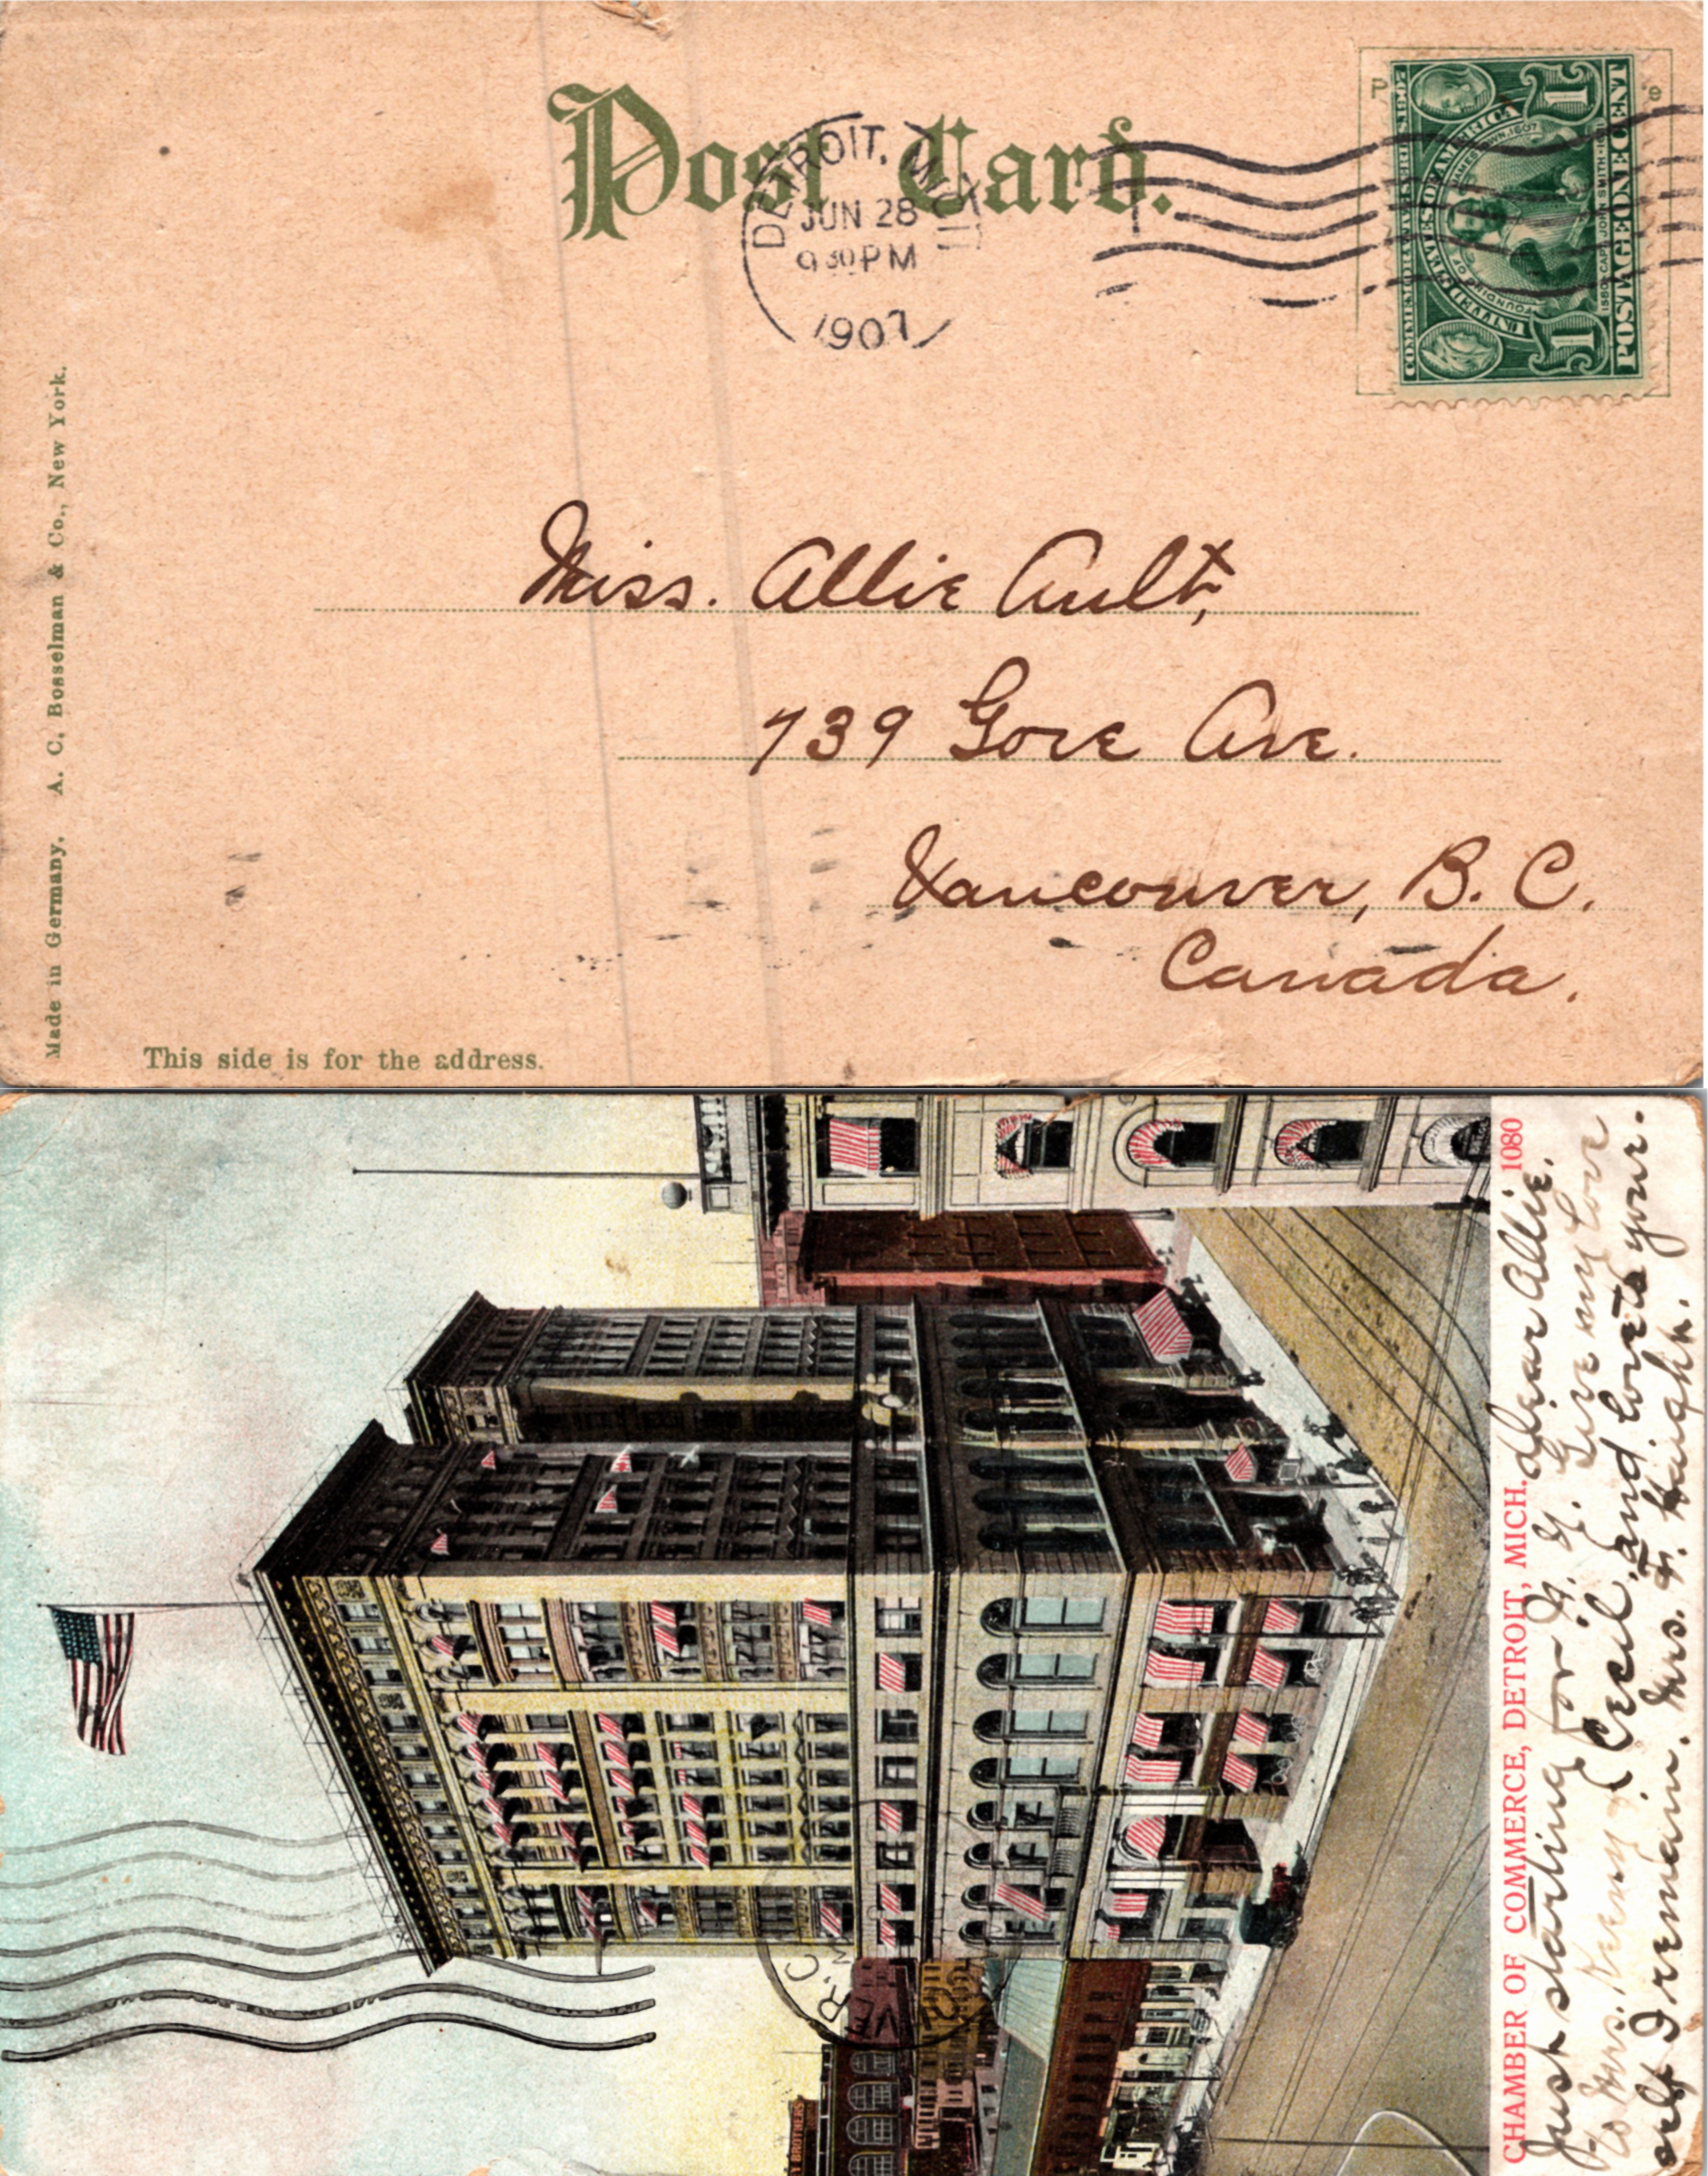 Post Card.
DETROIT, MICH
JUN 28
9 30 PM
1907
COMMEMORATIVE SERIES 1907
UNITED STATES OF AMERICA
FOUNDING OF JAMESTOWN, 1607
1580 CAPT. JOHN SMITH 1631
1 1
POSTAGE ONE CENT
Miss. Allie Ault,
739 Gore Ave.
Vancouver, B. C.
Canada.
Made in Germany. A. C. Bosselman & Co., New York.
This side is for the address.
CHAMBER OF COMMERCE, DETROIT, MICH. 1080
Dear Allie.
Just starting for N. Y. Give my love
to Mrs. & Cecil, and love to your-
self I remain. Mrs. F. Haight.
VER. C
Y BROTHERS